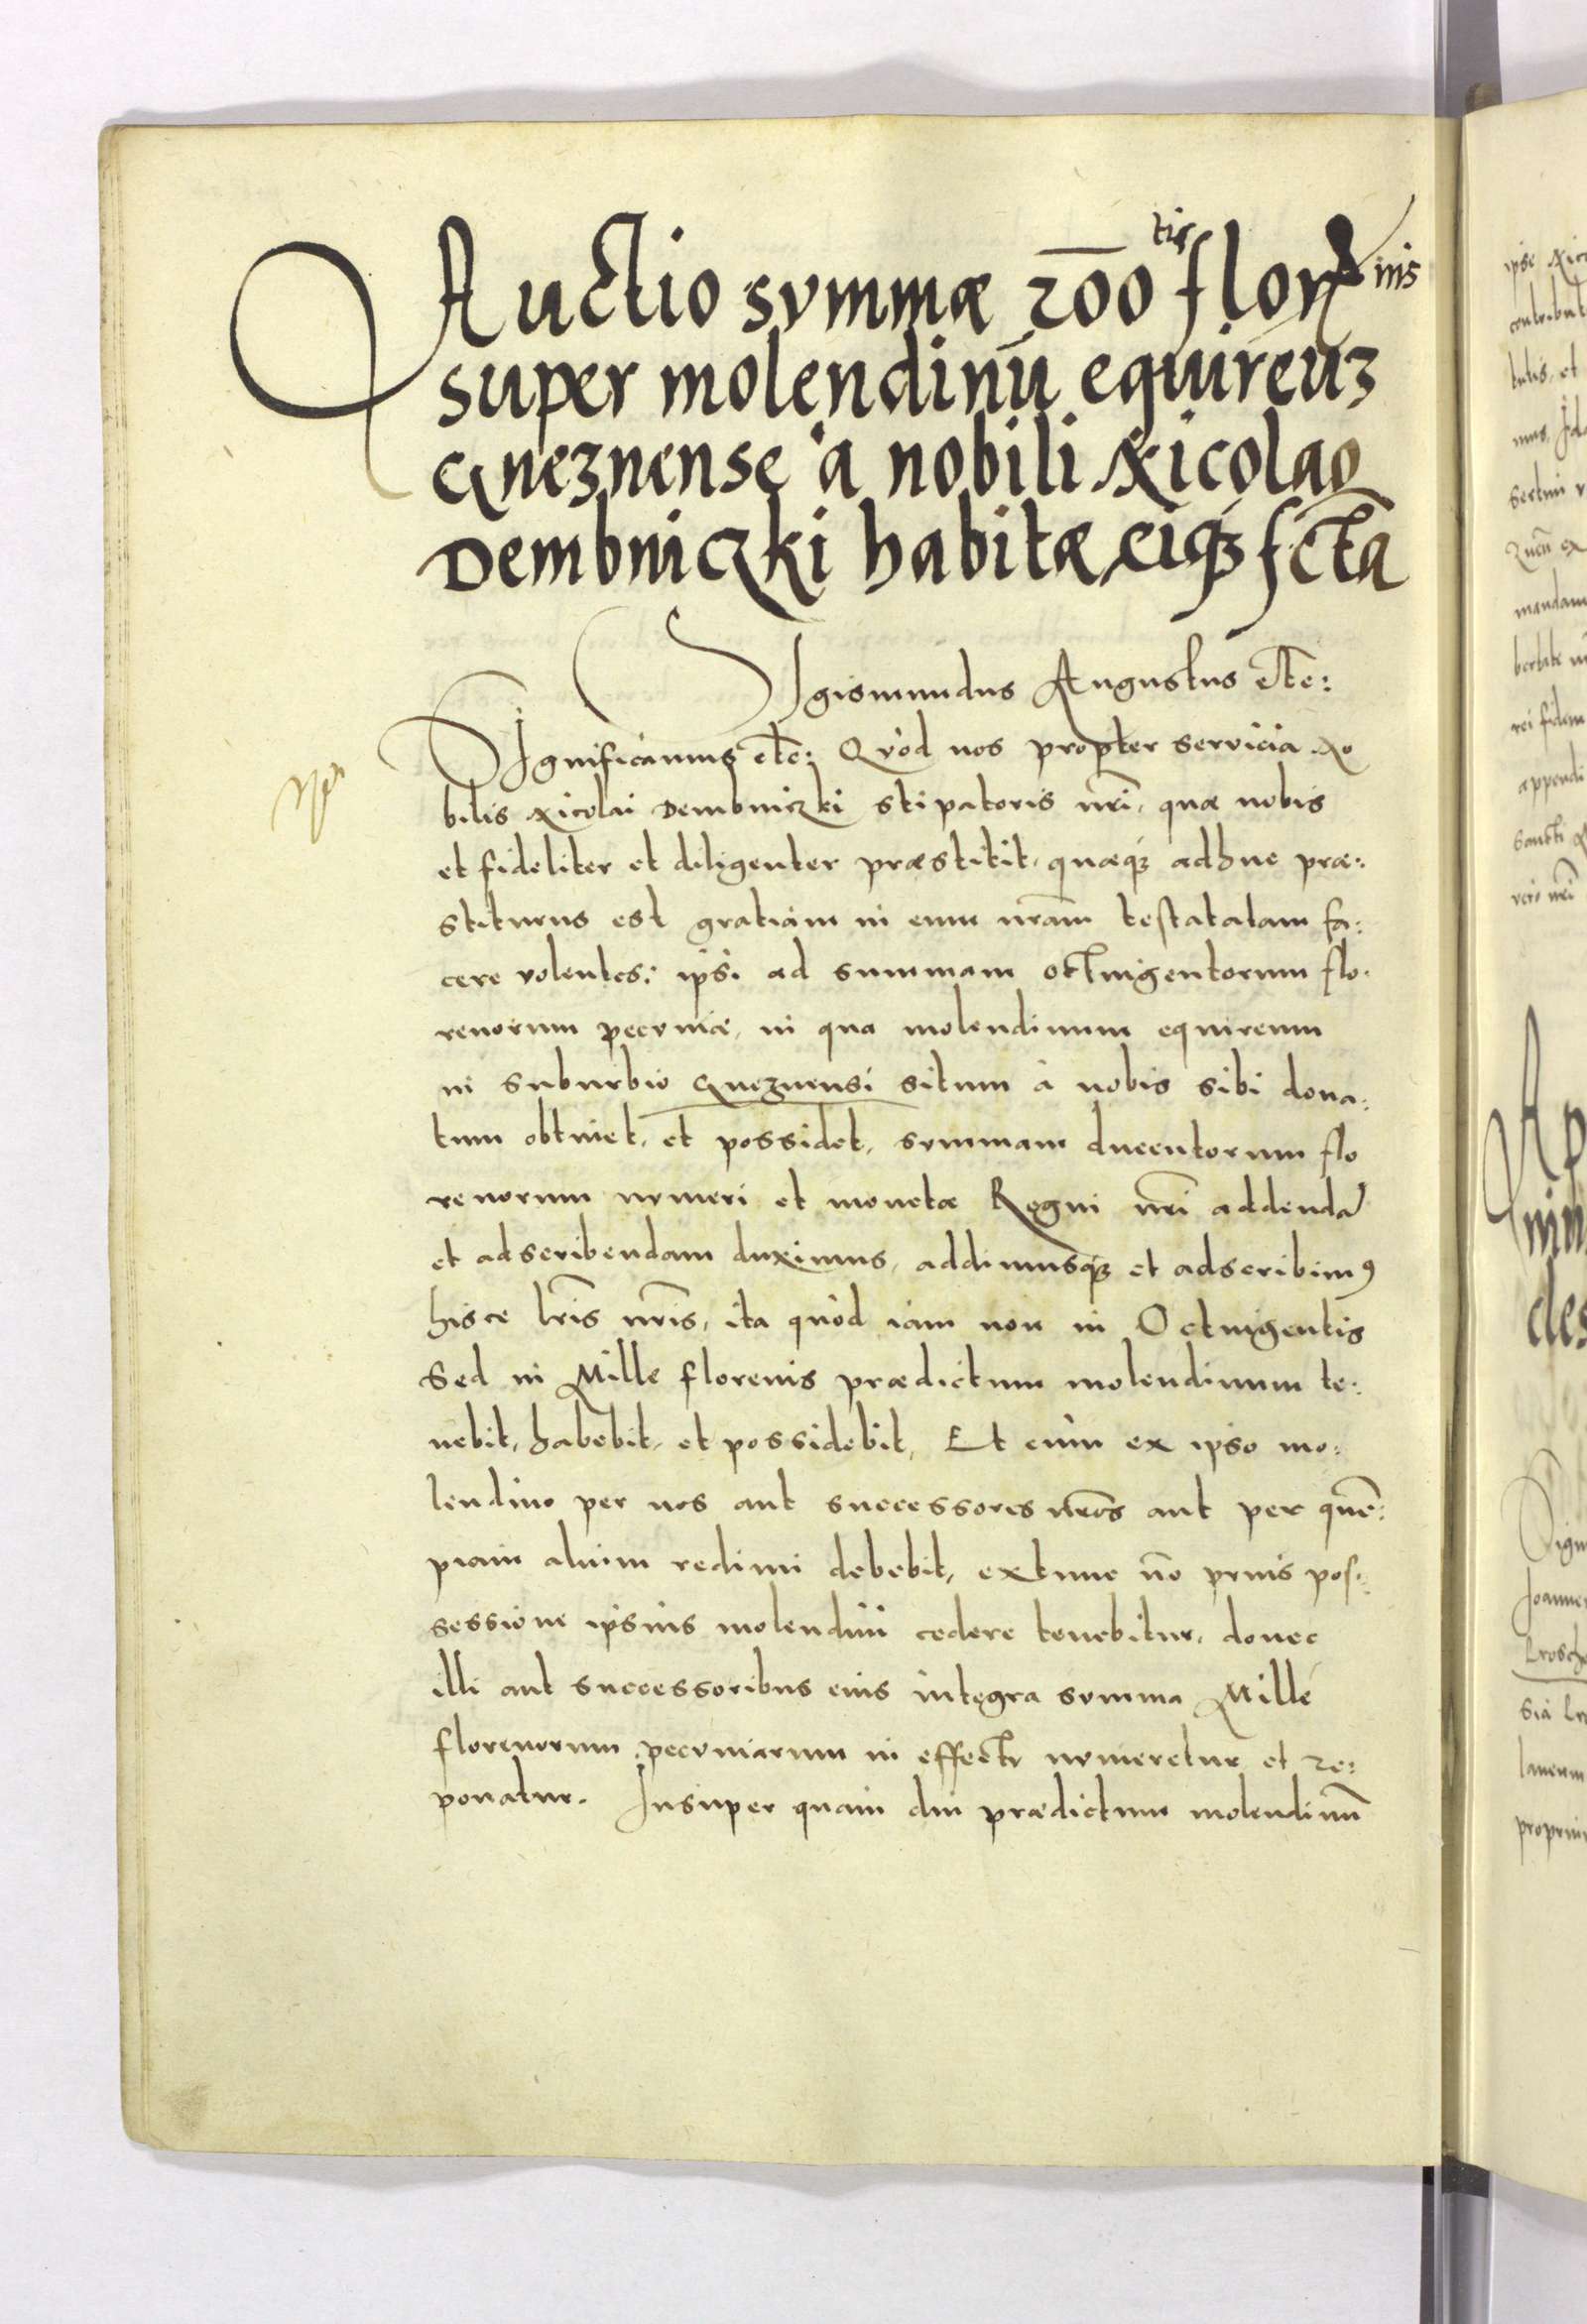 Auctio symmæ 200 tis flor nis
super molendinū equireuʒ
Gneznense a nobili Nicolao
Dembniczki habitæ, eiqʒ fcta
Sigismundus Augustus etc:
Significamus etc: Quod nos propter servicia No
bilis Nicolai Dembniczki stipatoris nri, quæ nobis
et fideliter et diligenter præstitit, quæqʒ adhuc præ:
stiturus est gratiam in eum nram testatatam fa:
cere volentes: ipsi ad summam octuigentorum flo:
renorum pecuniæ, in qua molendinum equireum
in suburbio Gneznensi situm à nobis sibi dona:
tum obtinet, et possidet, symmam ducentorum flo
renorum nvmeri et monetæ Regni nri addenda
et adscribendam duximus, addimusqʒ et adscribimꝰ
hisce lris nris, ita quod iam non in Octuigentis
Sed in Mille florenis prædictum molendinum te:
nebit, habebit, et possidebit, Et cùm ex ipso mo:
lendino per nos aut successores nros aut per quē:
piam alium redimi debebit, extunc nō prius pos:
sessione ipsius molendini cedere tenebitur, donec
illi aut successoribus eius integra symma Mille
florenorum pecvniarum in effectv nvmeretur et re:
ponatur. Insuper quam diu prædictum molendinū